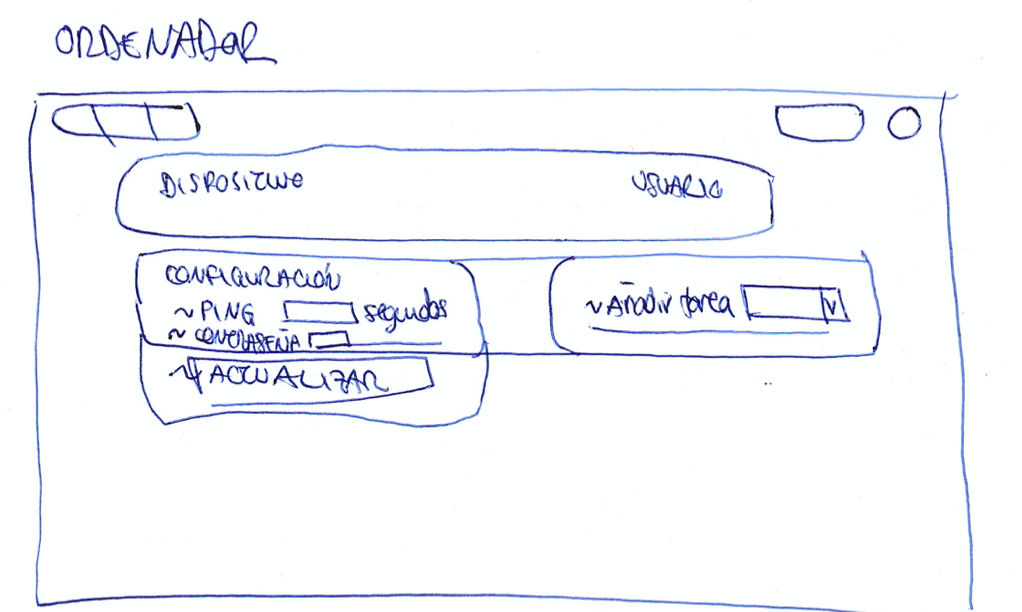 ORDENADOR
DISPOSITIVO USUARIO
CONFIGURACIÓN
~ PING segundos
~ CONTRASEÑA
~ Añadir tarea V
ACTUALIZAR